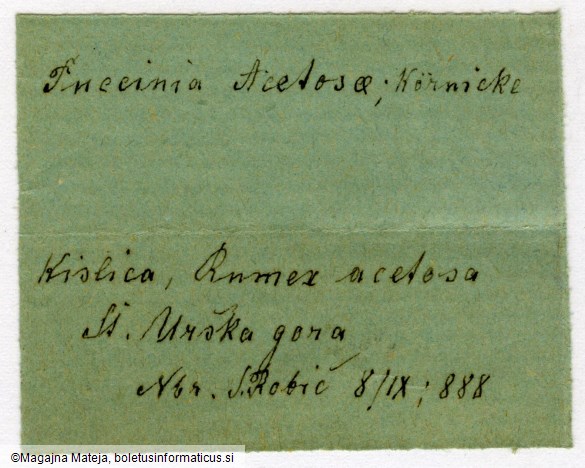 Puccinia Acetosæ; Körnicke
Kislica, Rumex acetosa
St. Urška gora
Nbr. S. Robič 8/IX; 888
©Magajna Mateja, boletusinformaticus.si